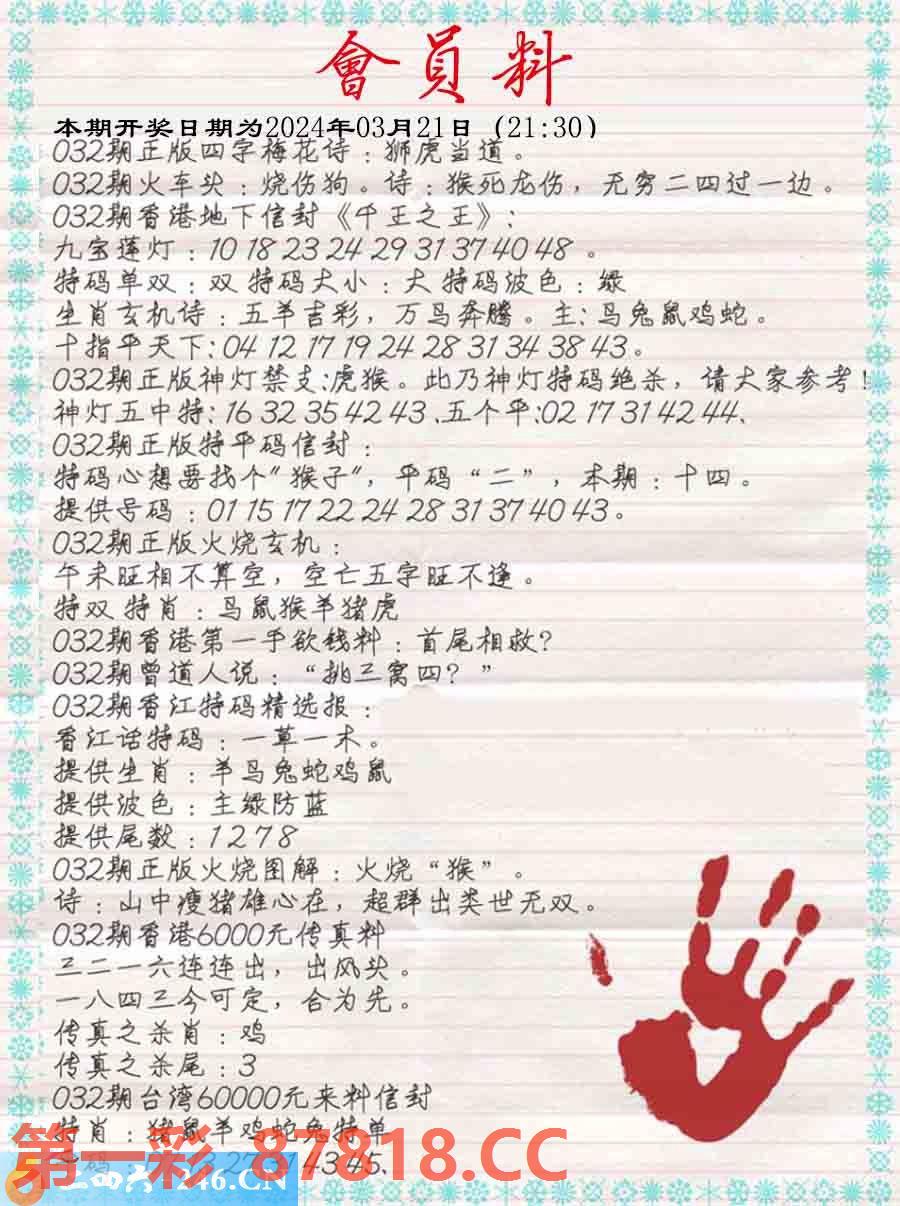 會員料
本期开奖日期为2024年03月21日（21:30）
032期正版四字梅花诗：狮虎当道。
032期火车头：烧伤狗。诗：猴死龙伤，无穷二四过一边。
032期香港地下信封《千王之王》：
九宝莲灯：10 18 23 24 29 31 37 40 48 。
特码单双：双 特码大小：大 特码波色：绿
生肖玄机诗：五羊吉彩，万马奔腾。主：马兔鼠鸡蛇。
十指平天下：04 12 17 19 24 28 31 34 38 43。
032期正版神灯禁支：虎猴。此乃神灯特码绝杀，请大家参考！
神灯五中特：16 32 35 42 43 .五个平:02 17 31 42 44、
032期正版特平码信封：
特码心想要找个“猴子”，平码“二”，本期：十四。
提供号码：01 15 17 22 24 28 31 37 40 43。
032期正版火烧玄机：
午未旺相不算空，空亡五字旺不逢。
特双 特肖：马鼠猴羊猪虎
032期香港第一手欲钱料：首尾相救？
032期曾道人说：“挑三窝四？”
032期香江特码精选报：
香江话特码：一草一木。
提供生肖：羊马兔蛇鸡鼠
提供波色：主绿防蓝
提供尾数：1 2 7 8
032期正版火烧图解：火烧“猴”。
诗：山中瘦猪雄心在，超群出类世无双。
032期香港6000元传真料
三二一六连连出，出风头。
一八四三今可定，合为先。
传真之杀肖：鸡
传真之杀尾：3
032期台湾60000元来料信封
特肖：猪鼠羊鸡蛇兔特单
27 31 43 45、
第一彩 87818.CC
二四六 246.CN